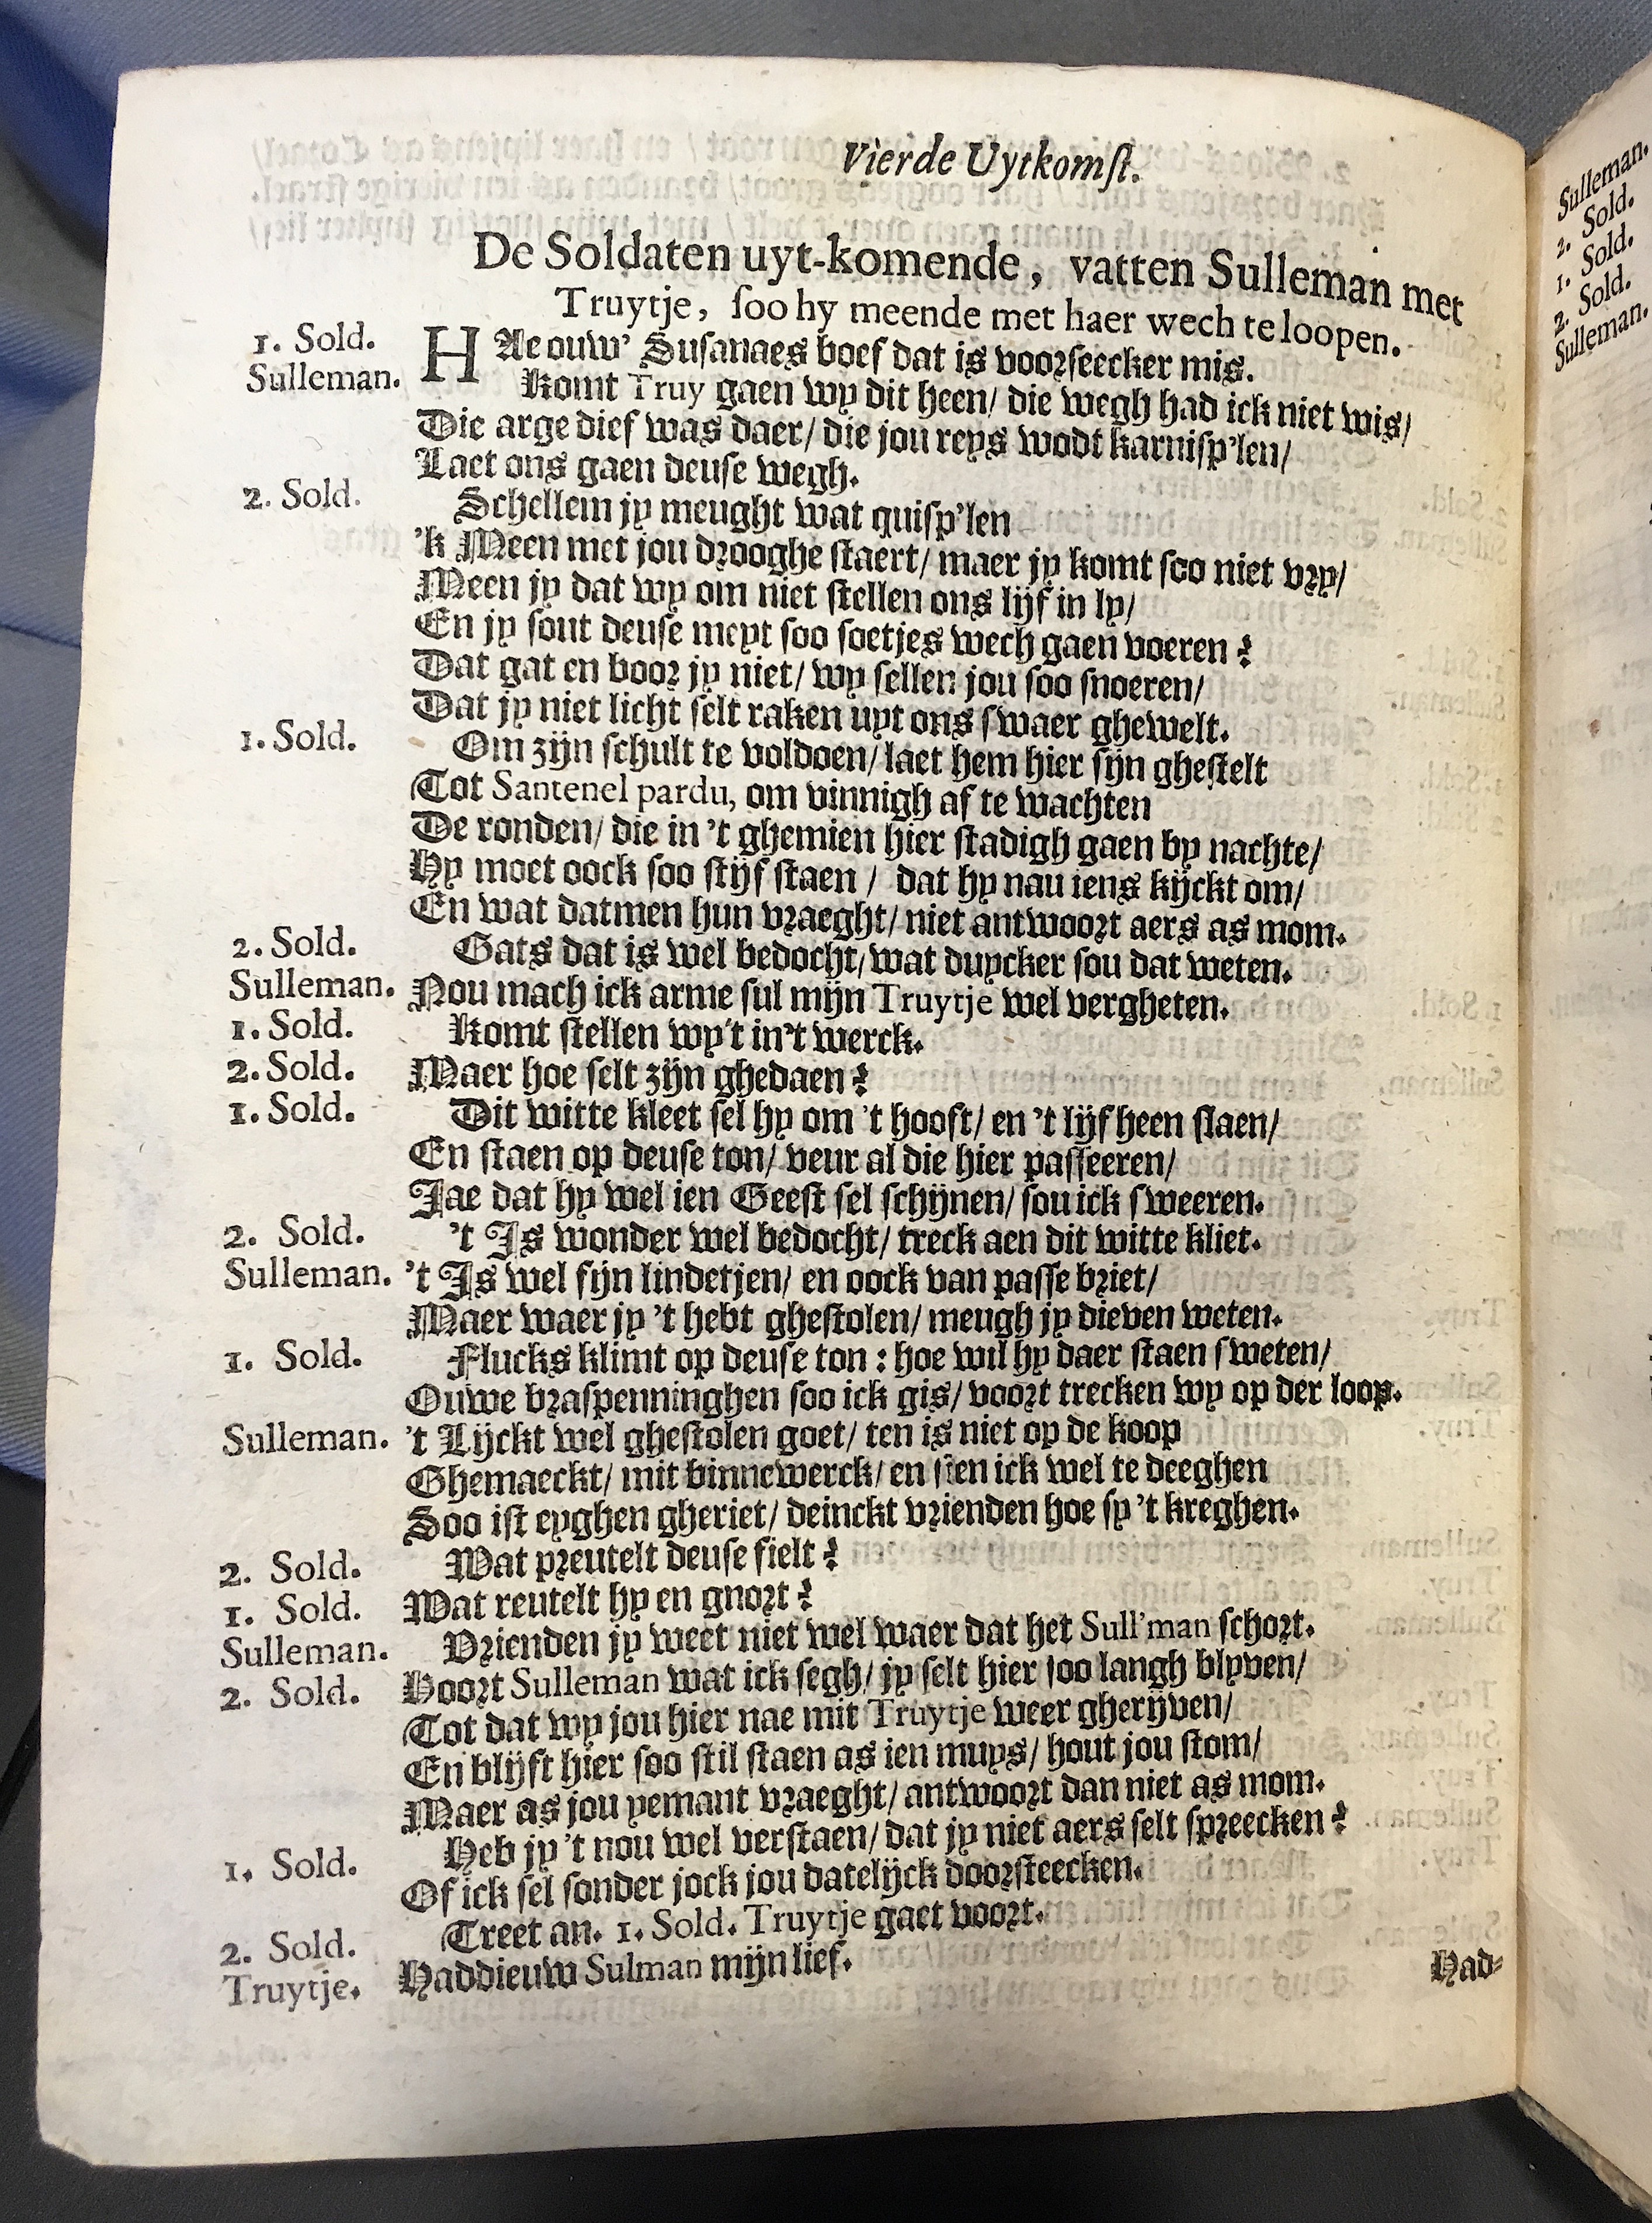 Vierde Uytkomſt.
De Soldaten uyt-komende, vatten Sulleman met
Truytje, ſoo hy meende met haer wech te loopen.
1. Sold. HAe ouw' Suſanaes boef dat is voorſeecker mis.
Sulleman. Komt Truy gaen wy dit heen/ die wegh had ick niet wis/
Die arge dief was daer/ die jou reys wodt karniſp'len/
Laet ons gaen deuſe wegh.
2. Sold. Schellem jy meught wat quiſp'len
'k Meen met jou drooghe ſtaert/ maer jy komt ſoo niet vry/
Meen jy dat wy om niet ſtellen ons lijf in ly/
En jy ſout deuſe meyt ſoo ſoetjes wech gaen voeren?
Dat gat en boor jy niet/ wy ſellen jou ſoo ſnoeren/
Dat jy niet licht ſelt raken uyt ons ſwaer ghewelt.
1. Sold. Om zijn ſchult te voldoen/ laet hem hier ſijn gheſtelt
Tot Santenel pardu, om vinnigh af te wachten
De ronden/ die in 't ghemien hier ſtadigh gaen by nachte/
Hy moet oock ſoo ſtijf ſtaen / dat hy nau iens kijckt om/
En wat datmen hun vraeght/ niet antwoort aers as mom.
2. Sold. Gats dat is wel bedocht/ wat duycker ſou dat weten.
Sulleman. Nou mach ick arme ſul mijn Truytje wel vergheten.
1. Sold. Komt ſtellen wy't in't werck.
2. Sold. Maer hoe ſelt zijn ghedaen?
1. Sold. Dit witte kleet ſel hy om 't hooft/ en 't lijf heen ſlaen/
En ſtaen op deuſe ton/ veur al die hier paſſeeren/
Jae dat hy wel ien Geeſt ſel ſchijnen/ ſou ick ſweeren.
2. Sold. 't Is wonder wel bedocht/ treck aen dit witte kliet.
Sulleman. 't Is wel fijn lindetjen/ en oock van paſſe briet/
Maer waer jy 't hebt gheſtolen/ meugh jy dieven weten.
1. Sold. Flucks klimt op deuſe ton: hoe wil hy daer ſtaen ſweten/
Ouwe braſpenninghen ſoo ick gis/ voort trecken wy op der loop.
Sulleman. 't Lijckt wel gheſtolen goet/ ten is niet op de koop
Ghemaeckt/ mit binnewerck/ en ſien ick wel te deeghen
Soo iſt eyghen gheriet/ deinckt vrienden hoe ſy 't kreghen.
2. Sold. Wat preutelt deuſe fielt?
1. Sold. Wat reutelt hy en gnort?
Sulleman. Vrienden jy weet niet wel waer dat het Sull'man ſchort.
2. Sold. Hoort Sulleman wat ick ſegh/ jy ſelt hier ſoo langh blyven/
Tot dat wy jou hier nae mit Truytje weer gherijven/
En blijft hier ſoo ſtil ſtaen as ien muys/ hout jou ſtom/
Maer as jou yemant vraeght/ antwoort dan niet as mom.
1. Sold. Heb jy 't nou wel verſtaen/ dat jy niet aers ſelt ſpreecken?
Of ick ſel ſonder jock jou datelijck doorſteecken.
2. Sold. Treet an. 1. Sold. Truytje gaet voort.
Truytje. Haddieuw Sulman mijn lief.
Had-
Sulleman.
2. Sold.
1. Sold.
2. Sold.
Sulleman.